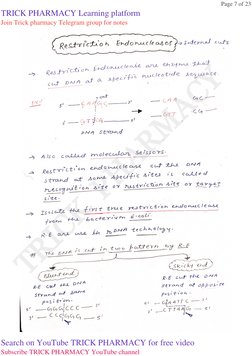 Page 7 of 23
TRICK PHARMACY Learning platform
Join Trick pharmacy Telegram group for notes
Restriction Endonucleases → Internal cuts
→ Restriction Endonuclease are enzyme that
cut DNA at a specific nucleotide sequence
DNA strand
→ Also called molecular scissors.
→ Restriction endonuclease cut the DNA
strand at some specific sites is called
recognition site or restriction site or target
site.
→ Isolate the first true restriction endonuclease
from the bacterium E-coli
→ RE are use in rDNA technology.
→ The DNA is cut in two pattern by R.E
Blunt end
RE cut the DNA
strand at same
position.
Sticky end
RE cut the DNA
strand at opposite
position.
TRICK PHARMACY
Search on YouTube TRICK PHARMACY for free video
Subscribe TRICK PHARMACY YouTube channel